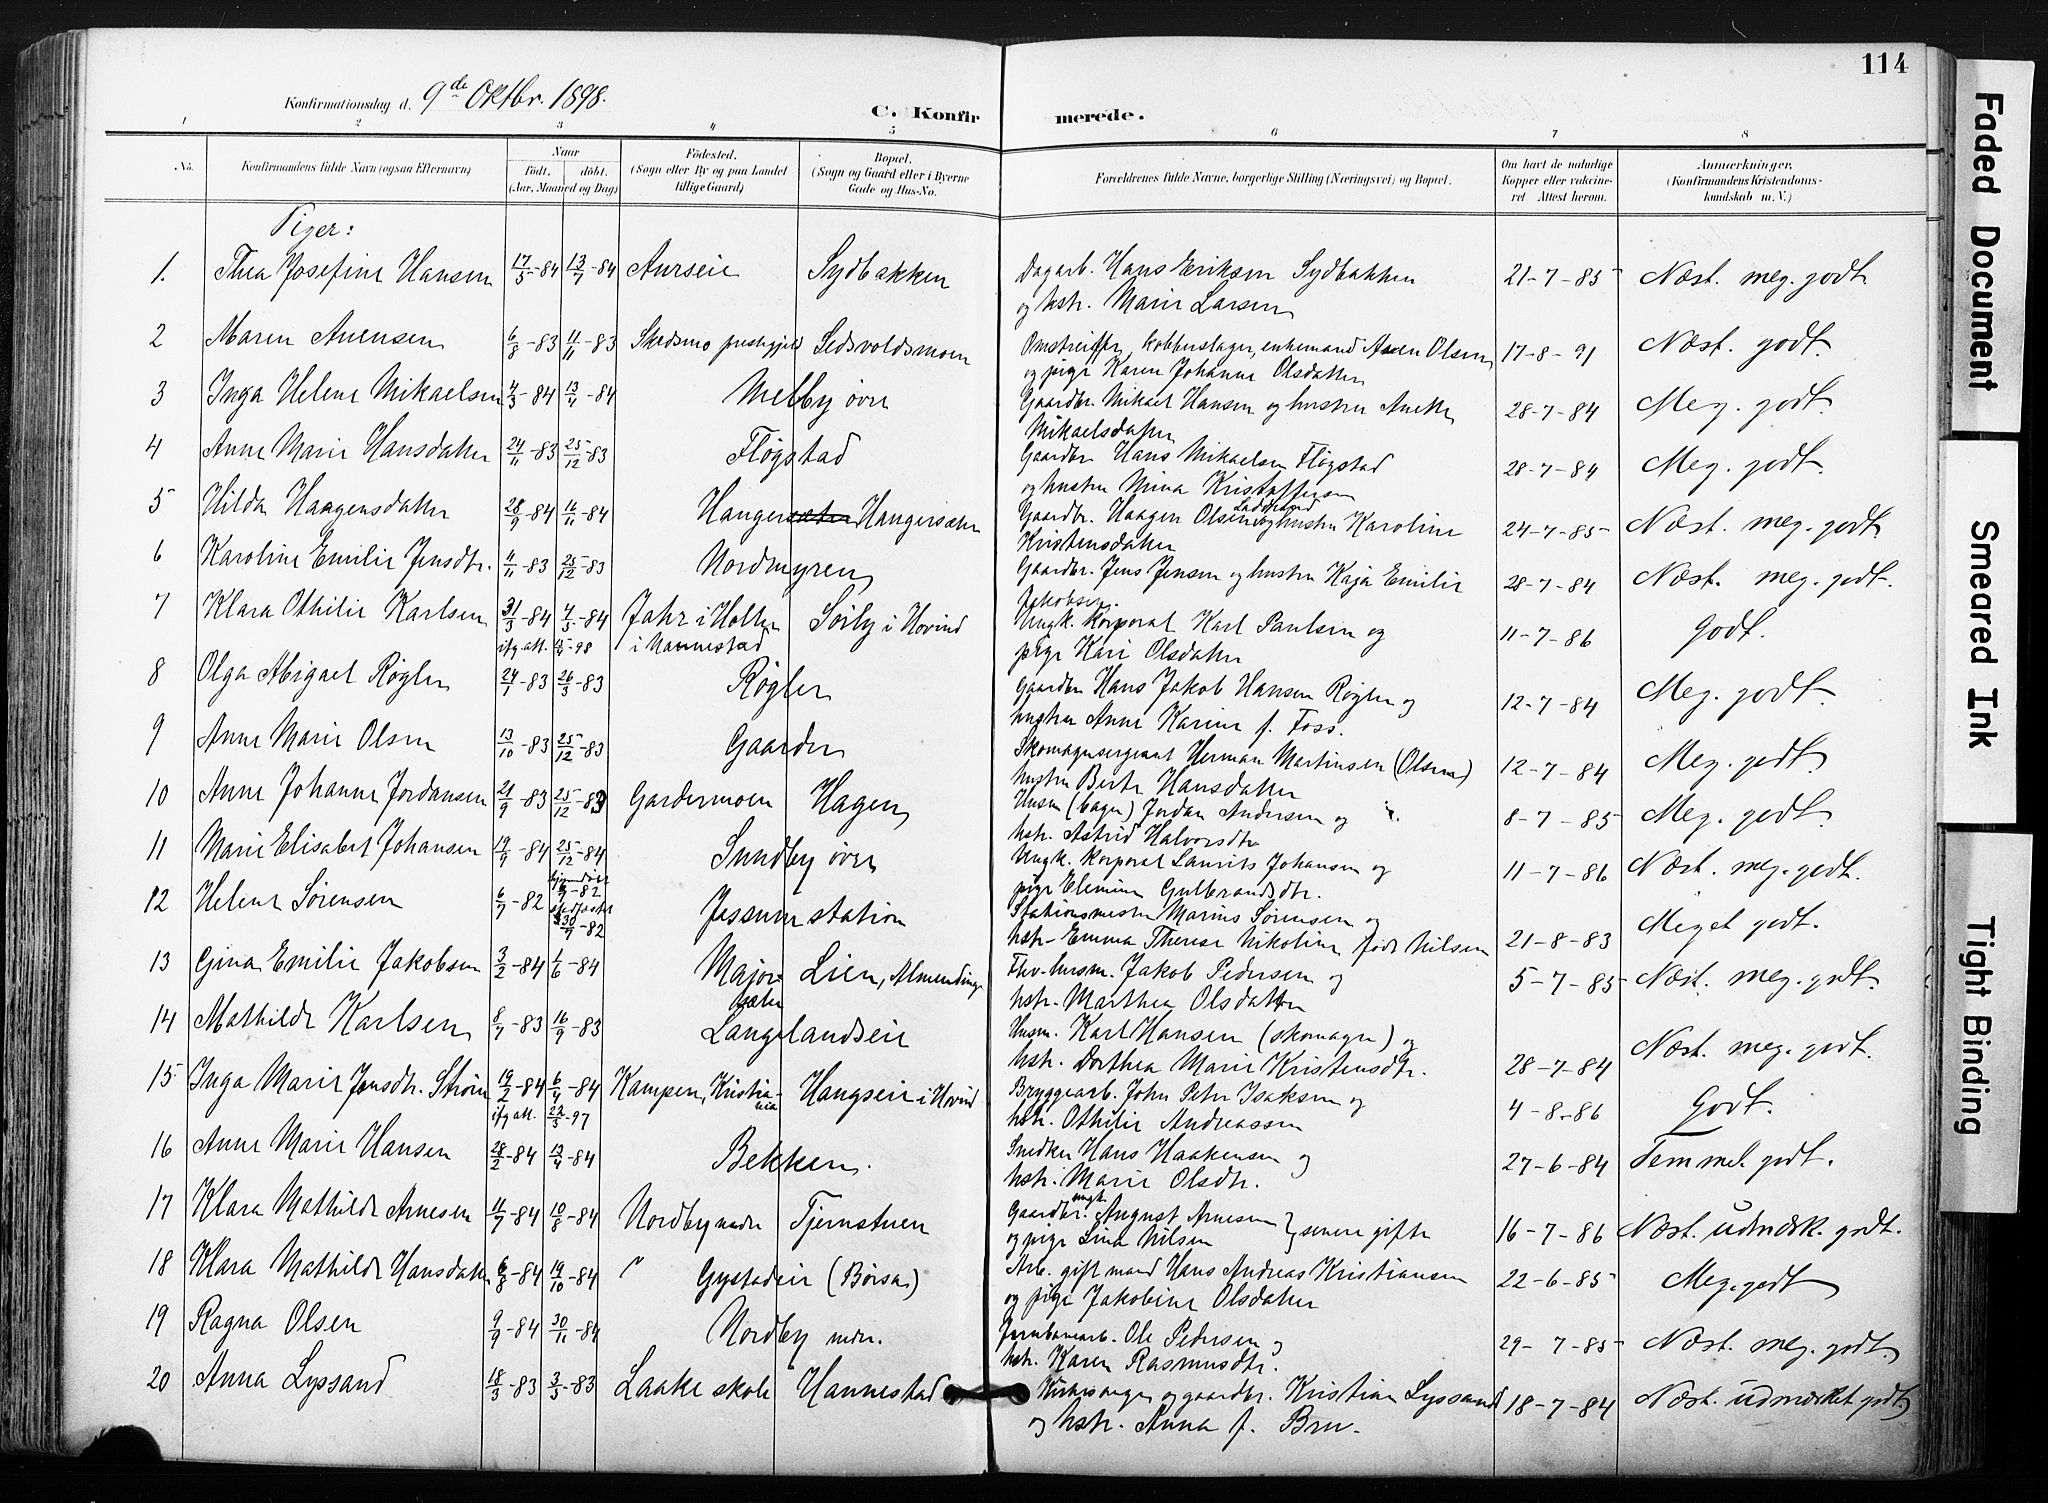 114
Konfirmationsdag d. 9de Oktbr. 1898.
C. Konfirmerede.
1 2 3 4 5 6 7 8
No. Konfirmandens fulde Navn (ogsaa Efternavn) Naar Født. døbt. (Aar, Maaned og Dag) Fødested. (Sogn eller By og paa Landet tillige Gaard) Bopæl. (Sogn og Gaard eller i Byerne Gade og Hus-No. Forældrenes fulde Navne, borgerlige Stilling (Næringsvei) og Bopæl. Om havt de naturlige Kopper eller vakcineret Attest herom. Anmærkninger. (Konfirmandens Kristendomskundskab m. V.)
Piger:
1. Thea Josefine Hansen 17/5-84 13/7-84 Aurseie Sydbakken Dagarb. Hans Eriksen Sydbakken 21-7-85 Næst. meg. godt
og hstr. Marie Larsen
2 Maren Anensen 6/8-83 11/11-83 Skedsmo Sedsvoldsmoen Omstreiffer, kobberslager, enkemand Anen Olsen 17-8-91 Næst. godt.
og pige Karen Johanne Olsdatter
3 Inga Helene Mikaelsen 4/3-84 13/4-84 Melby øvre Gaardbr. Mikael Hansen og hustru Anette 28-7-84 Meg. godt.
Mikaelsdatter
4 Anne Marie Hansdatter 24/11-83 25/12-83 Fløgstad Gaardbr Hans Mikaelsen Fløgstad 28-7-84 Meg. godt.
og hustru Mina Kristoffersen
5 Hilda Haagensdatter 28/9-84 16/11-84 Hangersæter Hangersæter Gaardbr. Haagen Olsen og hustru Karoline 24-7-85 Næst. meg. godt
Kristensdatter
6 Karoline Emilie Jensdtr. 4/11-83 25/12-83 Nordmyren Gaardbr. Jens Jensen og hustru Kaja Emilie 28-7-84 Næst. meg. godt.
Jakobsen.
7 Klara Othilie Karlsen 31/3-84 4/5-84 Jahr i Holter Sørby i Hovind Ungk. Korporal Karl Paulsen og 11-7-86 godt.
ifg. att. -98 i Nannestad pige Kari Olsdatter
8 Olga Abigael Røgler 24/1-83 26/3-83 Røgler Gaardbr Hans Jakob Hansen Røgler og 12-7-84 Meg. godt.
hustru Anne Karine f. Foss.
9 Anne Marie Olsen 13/10-83 25/12-83 Gaarder Skomagersergeant Herman Martinsen (Olsen) 12-7-84 Meg. godt
hustru Berte Hansdatter
10 Anne Johanne Jordansen 21/9-83 25/12-83 Gardermoen Hagen Husm (bager) Jordan Andersen og 8-7-85 Meg. godt.
hstr. Astrid Halvorsdtr
11 Marie Elisabet Johansen 19/9-84 25/12-84 Sundby øvre Ungk. Korporal Laurits Johansen og 11-7-86 Næst. meg. godt.
pige Elemine Gulbrandsdtr.
12 Helene Sørensen 6/7-82 hjemdøbt 9/7-82 stadfæstet 30/9-82 Jessum station Stationsmester Marius Sørensen og
hstr. Emma Therese Nikoline født Nilsen 21-8-83 Meget godt.
13 Gina Emilie Jakobsen 3/2-84 1/6-84 Majorsæter Lien, Almendinge Thv-husm. Jakob Pedersen og 5-7-85 Næst. meg. godt.
hstr. Marthea Olsdatter
14 Mathilde Karlsen 8/7-83 16/9-83 Langelandseie Husm. Karl Hansen (skomager) og
hstr. Dorthea Marie Kristensdtr. 28-7-84 Næst. meg. godt.
15 Inga Marie Jensdtr. Strøm 19/2-84 6/4-84 Kampen, Kristiania Haugseie i Hovind Bryggearb. John Peter Isaksen og 4-8-86 Godt.
ifg att. 22/5-97 hstr. Othilie Andreassen
16 Anne Marie Hansen 28/2-84 13/4-84 Bekken. Snedker Hans Haakensen og 27-6-84 Temmel. godt.
hstr. Marie Olsdtr.
17 Klara Mathilde Arnesen 11/7-84 10/8-84 Nordby nedre Tjernstuen Gaardbr. ungk. August Arnesen } senere gifte 16-7-86 Næst. udmærk. godt.
og pige Lina Nilsen
18 Klara Mathilde Hansdatter 6/8-84 19/10-84 " Gystadeie (Børsa) Arb. gift mand Hans Andreas Kristiansen 22-6-85 Meg. godt
og pige Jakobine Olsdatter
19 Ragna Olsen 9/9-84 30/11-84 Nordby nedr. Jernbanearb. Ole Pedersen og 29-7-85 Næst. meg. godt.
hstr. Karen Rasmusdtr.
20 Anna Lyssand 18/3-83 3/5-83 Laake skole Hannestad Kirkesanger og gaardbr. Kristian Lyssand 18-7-84 Næst. udmærket godt.
og hstr. Anna f. Bru.
Faded Document
Smeared Ink
Tight Binding